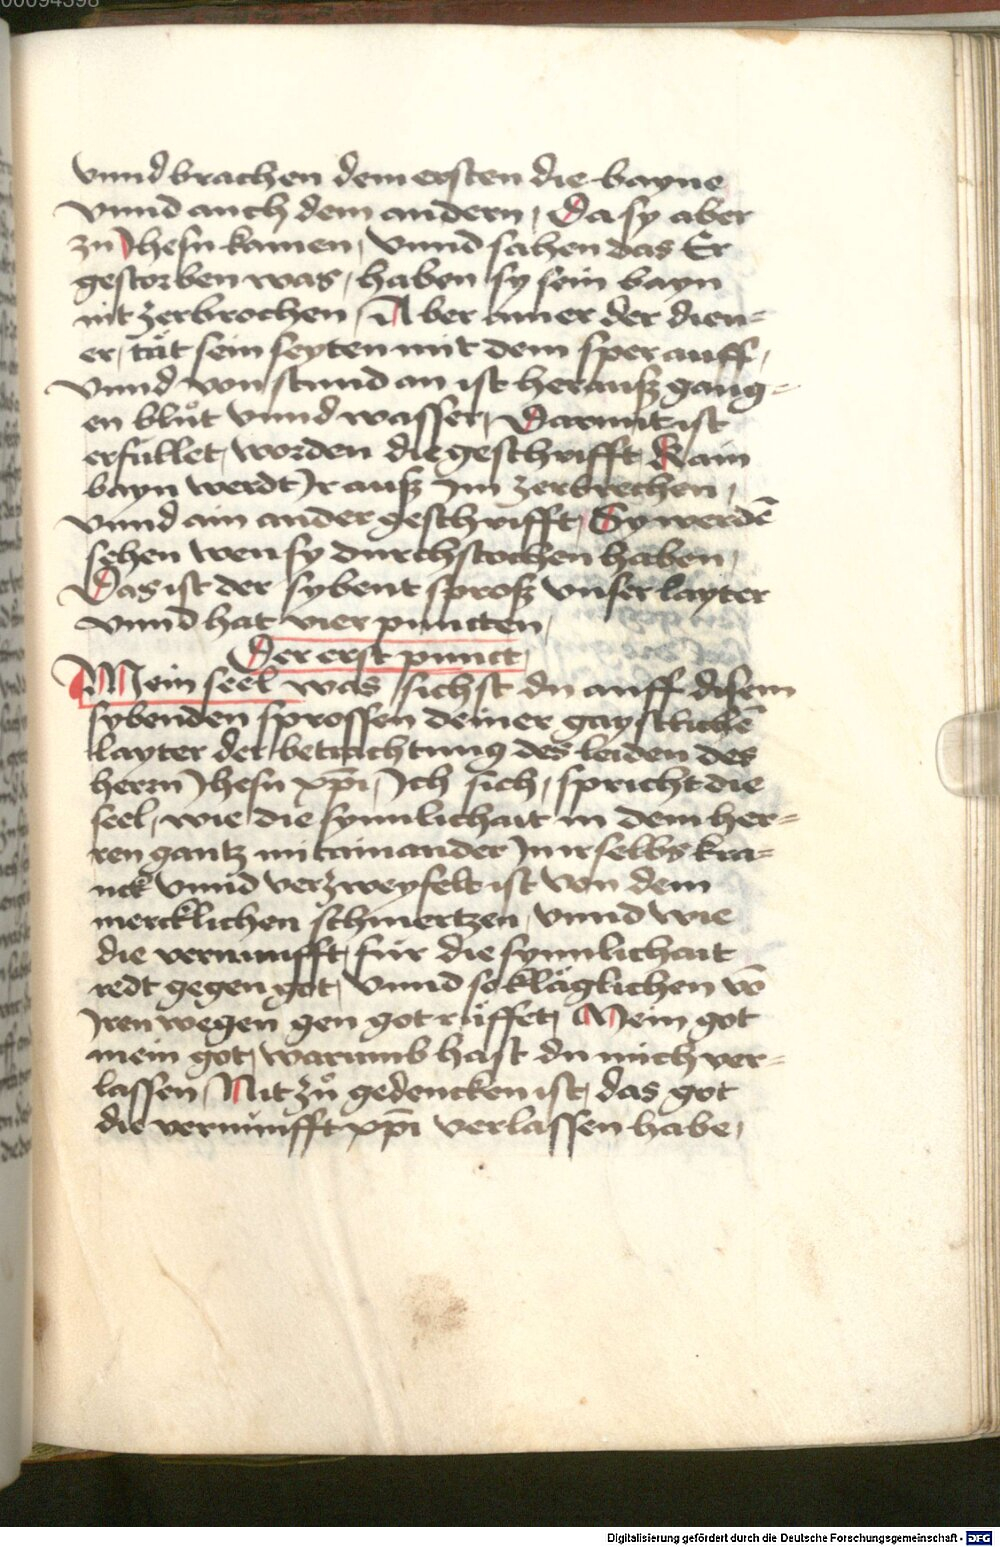 vnnd brachen dem ersten die bayne
vnnd auch dem andern, Da sy aber
zu Jhesu kamen, Vnnd sahen das Er
gestorben was, haben sy sein bayn
nit zerbrochen, Aber ainer der dien=
er, tät sein seyten mit dem sper auff,
Vnnd von stund an ist heraußgang=
en blůt vnnd wasser, Darmit ist
erfüllet, worden die geschrifft, Kain
bayn werdt Jr auß Jm zerbrechen,
vnnd ain ander geschrifft, Sy werdē
sehen wen sy durchstochen haben,
Das ist der sybent sproß vnser layter
vnnd hat vier puncten,
Der erst punct,
Mein seel was sichst du auff disem
sybenden sprossen deiner gaystlichē
layter der betrachtung des leiden des
herrn Jhesu xp̄i, Jch sich, spricht die
seel, wie die synnlichait in dem her=
ren gantz mitainander Jn ir selbs kra=
nck vnnd verzweyfelt ist von dem
mercklichen schmertzen, vnnd wie
die vernunfft, für die synnlichait
redt gegen got, Vnnd so kläglichen vō
Jren wegen gen got rüffet, Mein got
mein got, warumb hast du mich ver=
lassen, Nit zů gedencken ist, das got
die vernunfft xp̄i verlassen habe,
Digitalisierung gefördert durch die Deutsche Forschungsgemeinschaft - DFG